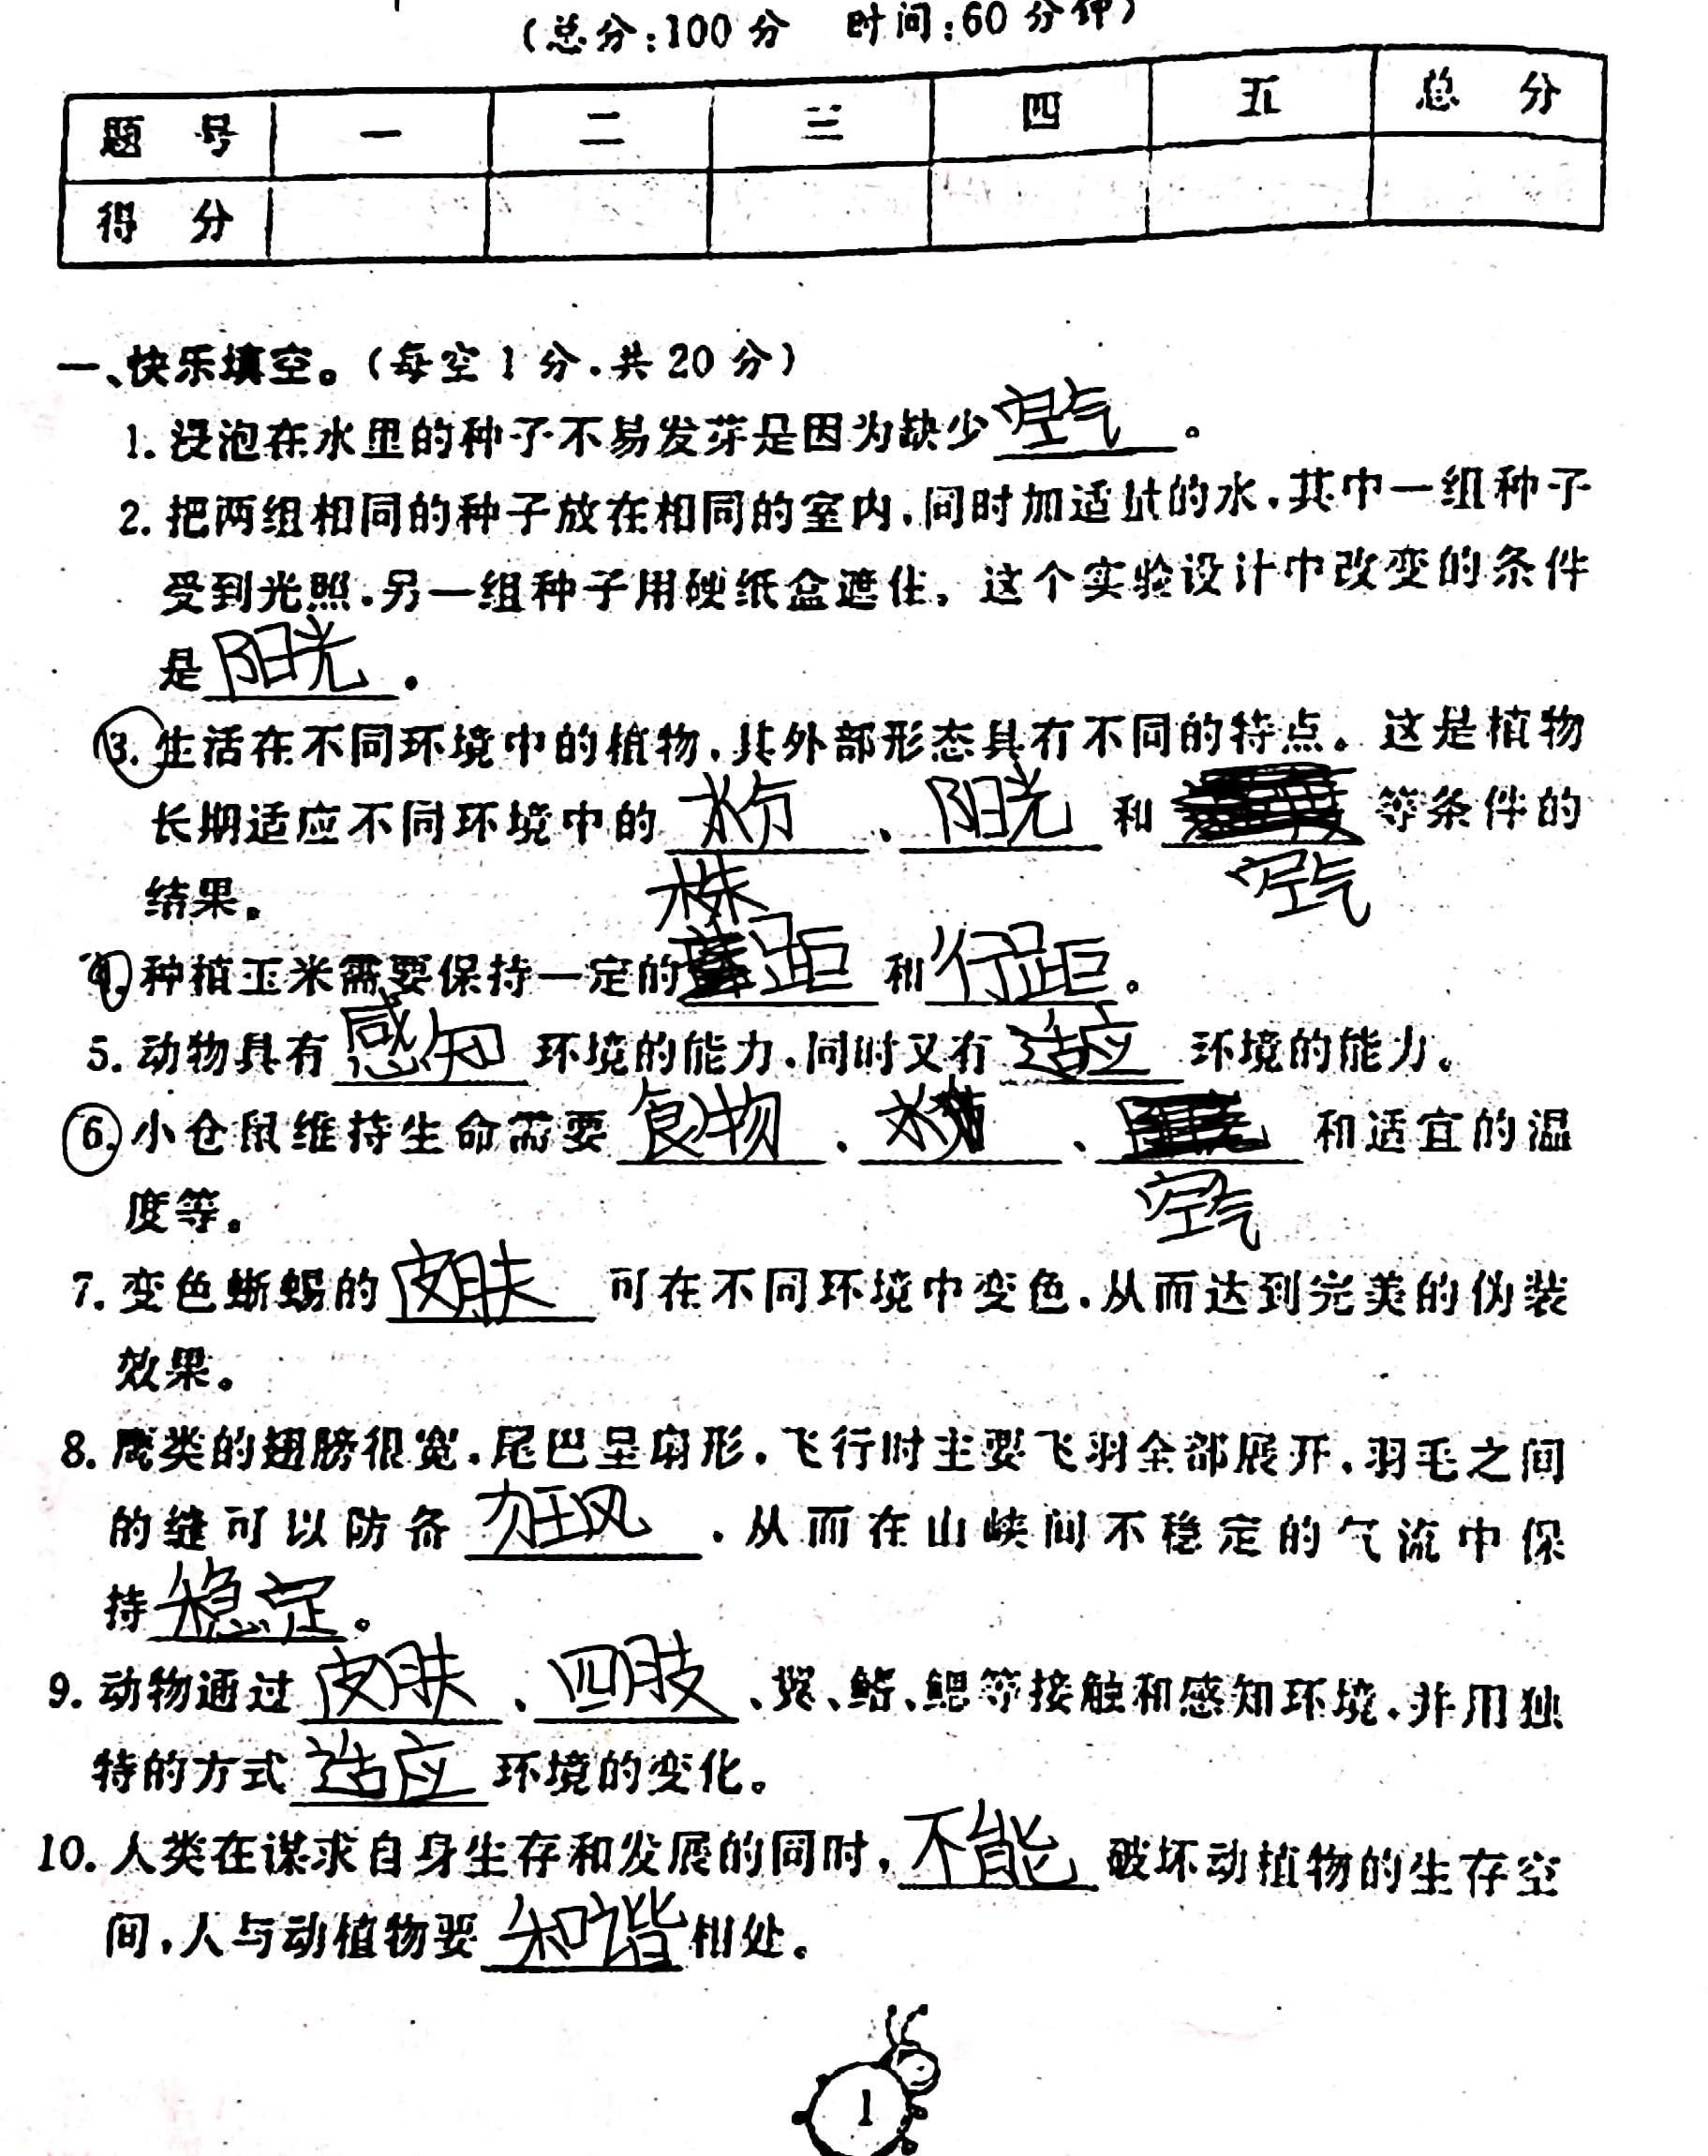 (总分:100分 时间:60分钟)
题 号 一 二 三 四 五 总 分
得 分
一、快乐填空。(每空1分,共20分)
1. 浸泡在水里的种子不易发芽是因为缺少空气。
2. 把两组相同的种子放在相同的室内,同时加适量的水,其中一组种子
受到光照,另一组种子用硬纸盒遮住,这个实验设计中改变的条件
是阳光。
3. 生活在不同环境中的植物,其外部形态具有不同的特点。这是植物
长期适应不同环境中的 水分 、 阳光 和 等条件的
空气
结果。
株
4. 种植玉米需要保持一定的 距 和 行距 。
5. 动物具有 感知 环境的能力,同时又有 适应 环境的能力。
6. 小仓鼠维持生命需要 食物 、 水 、 和适宜的温
空气
度等。
7. 变色蜥蜴的 皮肤 可在不同环境中变色,从而达到完美的伪装
效果。
8. 鹰类的翅膀很宽,尾巴呈扇形,飞行时主要飞羽全部展开,羽毛之间
的缝可以防备 狂风 ,从而在山峡间不稳定的气流中保
持 稳定 。
9. 动物通过 皮肤 、 四肢 、翼、鳍、鳃等接触和感知环境,并用独
特的方式 适应 环境的变化。
10. 人类在谋求自身生存和发展的同时, 不能 破坏动植物的生存空
间,人与动植物要 和谐 相处。
1